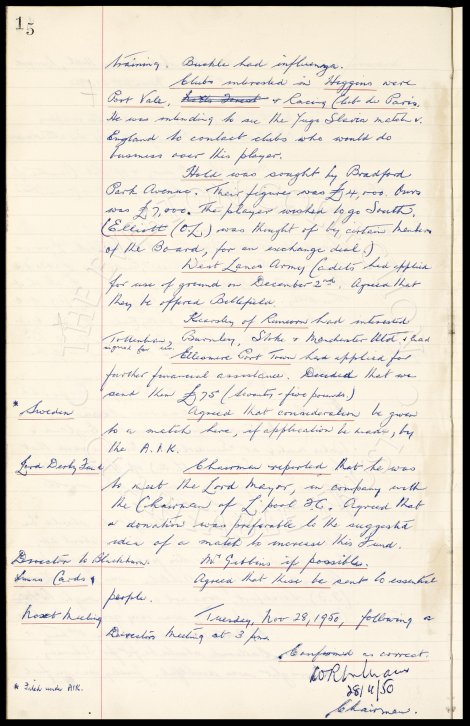 15
training. Buckle had influenza.
Clubs interested in Higgins were
Port Vale, Notts Forest & Racing Club de Paris.
He was intending to see the Yugo Slavia match v.
England to contact clubs who would do
business over this player.
Hold was sought by Bradford
Park Avenue. Their figure was £4,000. Ours
was £7,000. The player wished to go South.
(Elliott (OL) was thought of by certain members
of the Board, for an exchange deal.)
West Lancs Army Cadets had applied
for use of ground on December 2nd. Agreed that
they be offered Bellefield.
Kearsley of Runcorn had interested
Tottenham, Burnley, Stoke & Manchester Utd & had
signed for us.
Ellesmere Port Town had applied for
further financial assistance. Decided that we
send them £75 (seventy-five pounds.)
* Sweden Agreed that consideration be given
to a match here, if application be made, by
the A.I.K.
Lord Derby Fund Chairman reported that he was
to meet the Lord Mayor, in company with
the Chairman of L'pool FC. Agreed that
a donation was preferable to the suggested
idea of a match to increase this Fund.
Director to Blackburn. Mr Gibbins if possible.
Xmas Cards Agreed that these be sent to essential
people.
Next Meeting Tuesday, Nov 28, 1950, following a
Directors Meeting at 3 pm.
Confirmed as correct.
28/11/50
Chairman.
* Filed under AIK.